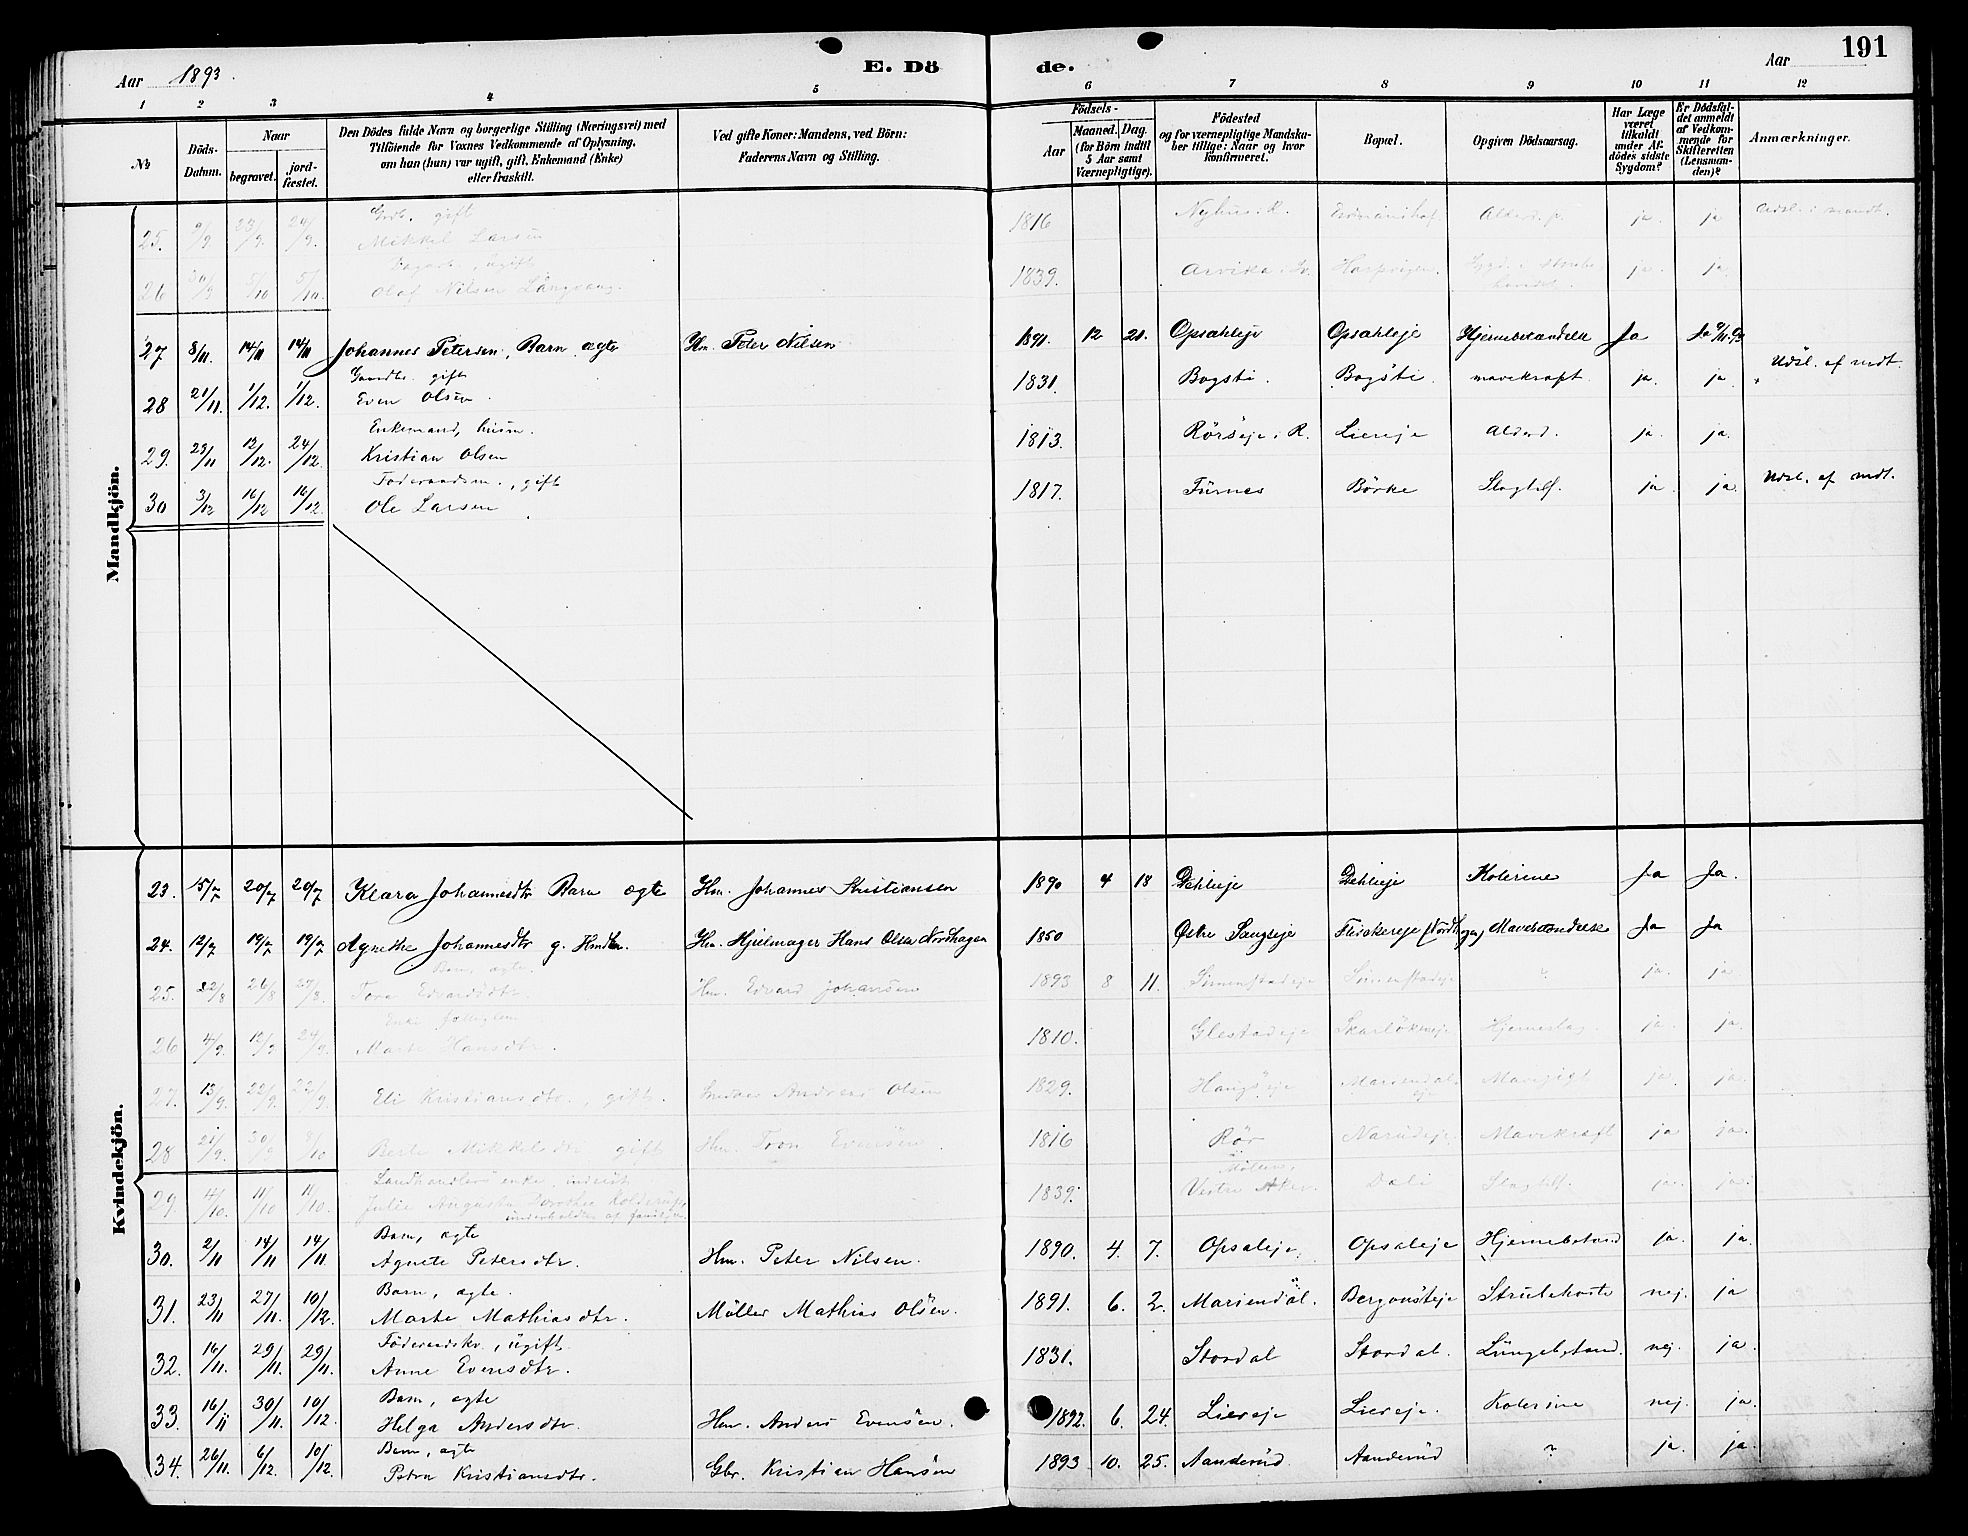 Aar 1893.
E. Dö
de.
Aar
191
1 2 3 4 5 6 7 8 9 10 11 12
№
Döds-Datum.
Naar
begravet.
jord-fæstet.
Den Dödes fulde Navn og borgerlige Stilling (Næringsvei) med
Tilföiende for Voxnes Vedkommende af Oplysning,
om han (hun) var ugift, gift, Enkemand (Enke)
eller fraskilt.
Ved gifte Koner: Mandens, ved Börn:
Faderens Navn og Stilling.
Födsels-
Aar
Maaned. Dag.
(for Börn indtil
5 Aar samt
Værnepligtige).
Födested
og for værnepligtige Mandska-
ber tillige: Naar og hvor
konfirmeret.
Bopæl.
Opgiven Dödsaarsag.
Har Læge
været
tilkaldt
under Af-
dödes sidste
Sygdom?
Er Dödsfal-
det anmeldt
af Vedkom-
mende for
Skifteretten
(Lensman-
den)?
Anmærkninger.
Mandkjön.
25. 9/9 23/9. 24/9. gift Mikkel Larsen 1816 Nyhus R. Alderd. ja. ja
26 30/9 5/10 5/10. ugift Olaf Nilsen Langvang. 1839. Arvika ja. ja.
27 8/11. 14/11 14/11 Johannes Petersen, Barn ægte Hm. Peter Nilsen 1891. 12 21. Opsahleje Opsahleje Hjernebetændelse Ja Ja 9/11.93
28 21/11. 1/12. 1/12. Gaardbr. gift Even Olsen. 1831. Bogsti. Bogsti. mavekræft. ja. ja. Udsl. af mdt.
29. 29/11 12/12. 24/12. Enkemand, husm. Kristian Olsen 1813. Rörseje i R. Liereje Alderd. ja. ja.
30 3/12 16/12 16/12. Föderaadsm., gift Ole Larsen 1817. Furnes Börke Slagtilf. ja. ja. Udsl. af mdt.
Kvindekjön.
23. 15/7 20/7 20/7 Klara Johannesdtr Barn ægte Hm. Johannes Kristiansen 1890 4 18 Dehlieje Dehlieje Kolerine Ja Ja.
24. 12/7 19/7 19/7 Agnethe Johannesdtr g. Hm. Hjulmager Hans Olsen Nordhagen 1850 Østre Sangseje Flisakereje Mavebetændelse Ja Ja
25. 22/8 26/8 27/8. Barn, ægte. Tora Edvardsdtr. Hm. Edvard Johansen 1893 8 11. Simenstadeje Simenstadeje ? ja. ja
26 4/9. 12/9 24/9. Enke Marte Hansdtr. 1810. Glestadeje Hjerneslag. ja. ja.
27. 13/9. 22/9. 22/9 Eli Kristiansdtr., gift. Andreas Olsen 1829. Haugseje Mariendal eje ja. ja.
28 21/9. 30/9 8/10 Berte Mikkelsdtr gift Hm. Tron Evensen 1816 Rör Narudeje Mavekræft ja ja.
29. 4/10. 11/10 11/10. Landhandlers enke Julie Augusta Dorothea underholdtes af familien 1839. Vestre Aker Dæli Slagtilf. ja. ja.
30. 2/11 14/11 14/11. Barn, ægte Agnete Petersdtr. Hm. Peter Nilsen. 1890. 4. 7. Opsaleje. Opsaleje Hjernebetænd ja. ja.
31. 23/11 27/11. 10/12. Barn, ægte. Marte Mathiasdtr. Möller Mathias Olsen. 1891. 6. 2. Mariendal. Strubehoste nej. ja
32. 16/11. 29/11. 29/11. Föderaadskv, ugift. Anne Evensdtr. 1831. Stordal Stordal. Lungebetænd. nej. ja.
33. 16/11 30/11. 10/12. Barn, ægte Helga Andersdtr. Hm. Anders Evensen. 1892. 6. 24. Liereje Liereje. Kolerine nej. ja.
34. 26/11. 6/12. 10/12. Barn, ægte Petra Kristiansdtr. Gbr. Kristian Hansen 1893 10. 25. Aanderud. Aanderud ? ja. ja.